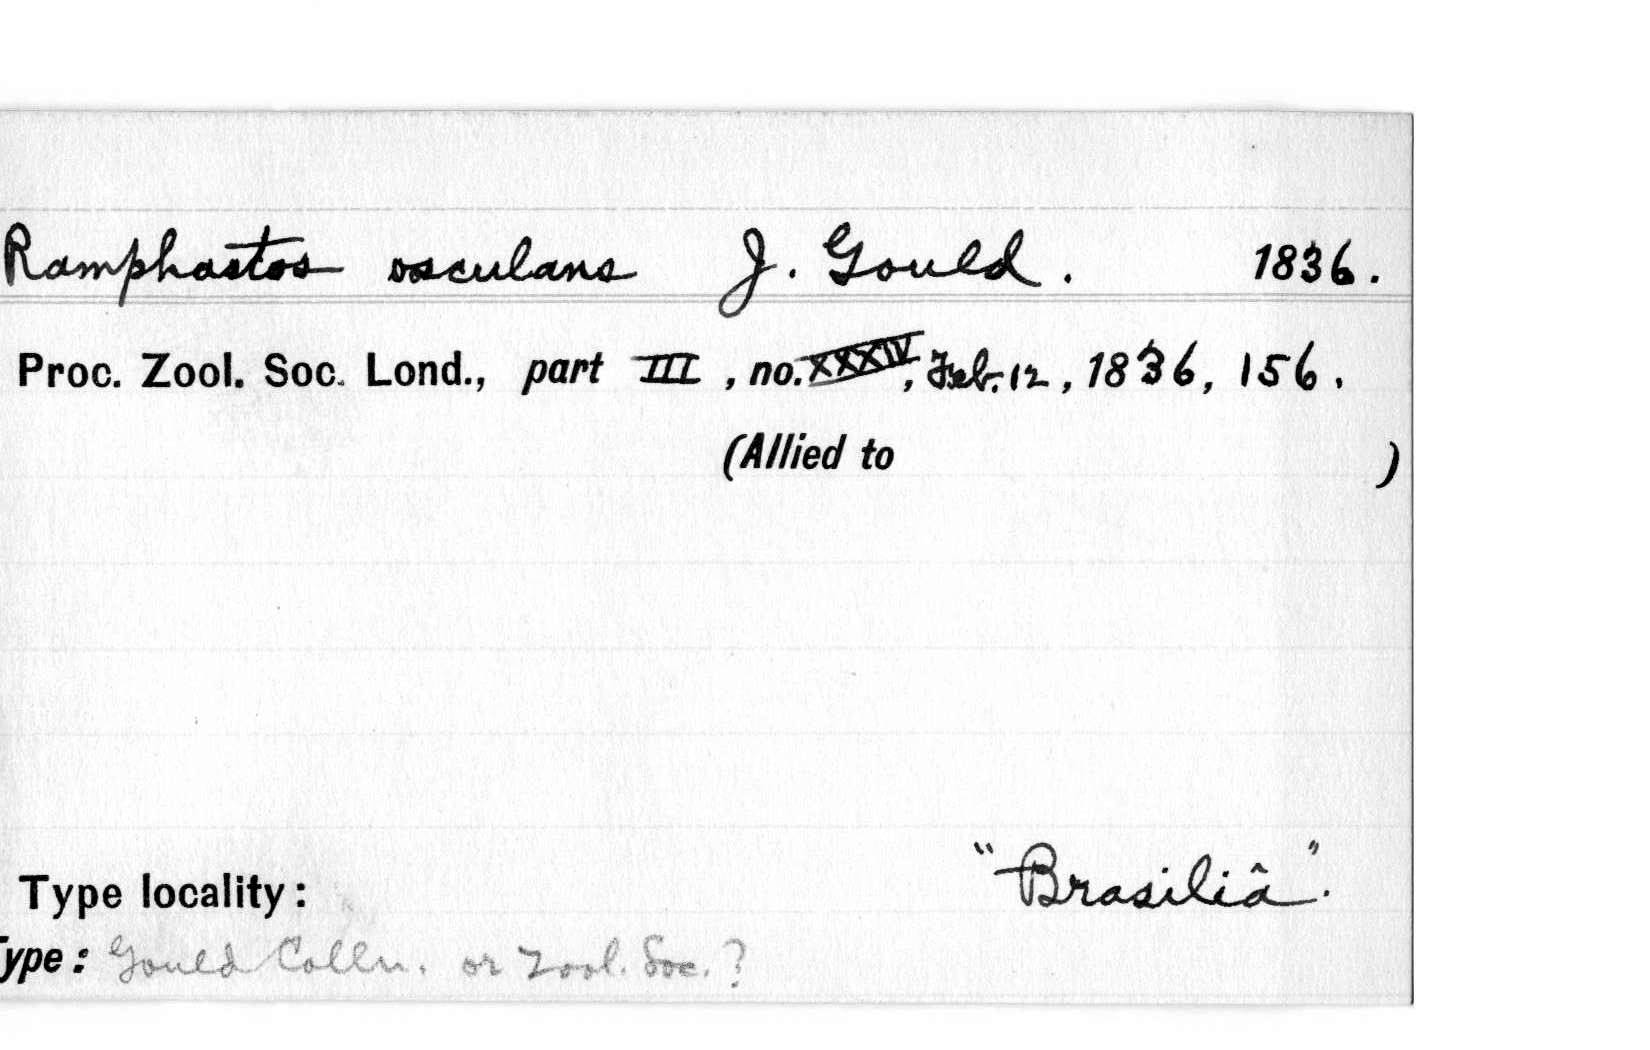 Ramphastos osculans J. Gould. 1836.
Proc. Zool. Soc. Lond., part III, no. XXXIV, Feb. 12, 1836, 156.
(Allied to )
"Brasiliâ".
Type locality:
Type: Gould Colln. or Zool. Soc.?